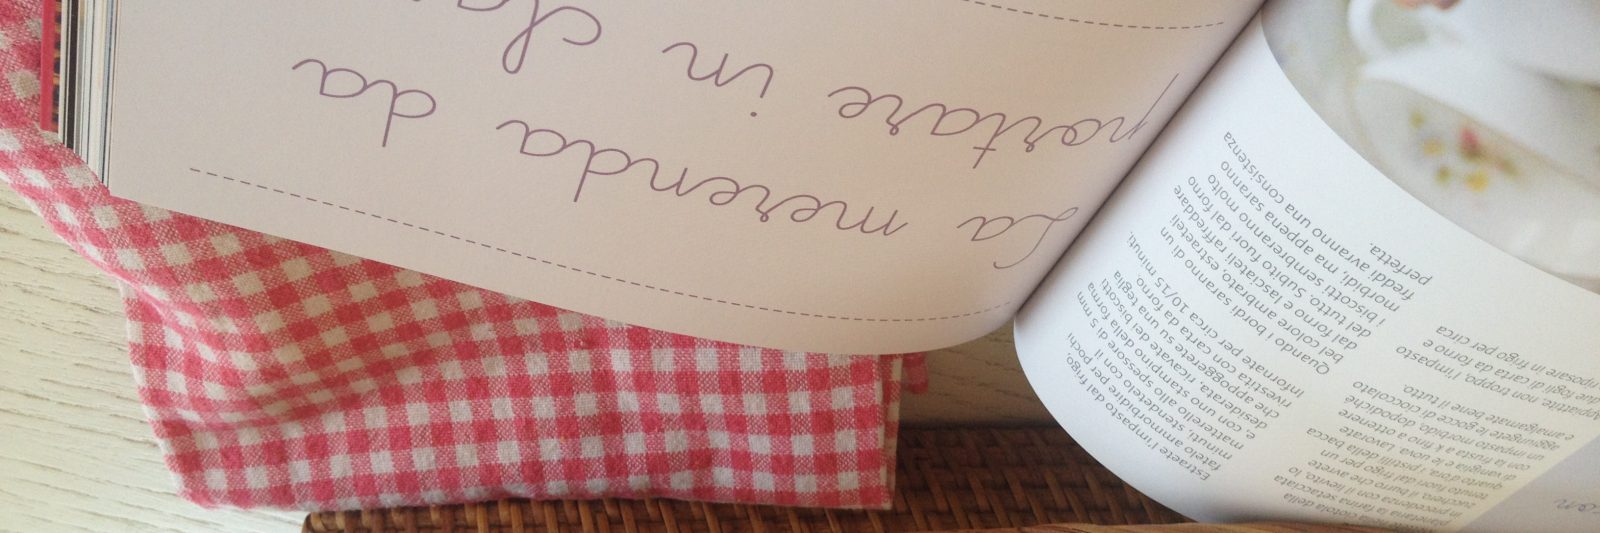 in precedenza con il lievito, lo
zucchero, il burro che avrete
tenuto fuori dal frigo per un
quarto d'ora, i pistilli della bacca
di vaniglia e le uova. Lavorate
con la frusta a k fino a ottenere
un impasto morbido, dopodiché
aggiungete le gocce di cioccolato
e amalgamate bene il tutto.
Appiattite, non troppo, l'impasto
due fogli di carta da forno e
riposare in frigo per circa
Estraete l'impasto dal frigo,
fatelo ammorbidire per pochi
minuti, stendetelo con il
matterello allo spessore di 5 mm
e, con uno stampino della forma
desiderata, ricavate dei biscotti
che appoggerete su una teglia
rivestita con carta da forno
Infornate per circa 10/15 minuti.
Quando i bordi saranno di un
bel colore ambrato, estraeteli
dal forno e lasciateli raffreddare
del tutto. Subito fuori dal forno
i biscotti sembreranno molto
morbidi, ma appena saranno
freddi avranno una consistenza
perfetta.
La merenda da
portare in